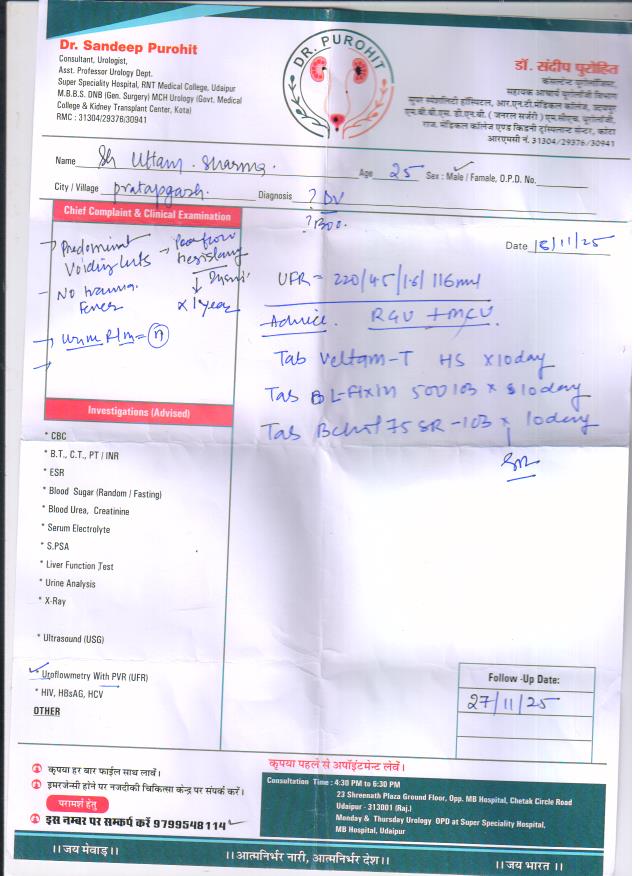 Dr. Sandeep Purohit
Consultant, Urologist,
Asst. Professor Urology Dept.
Super Speciality Hospital, RNT Medical College, Udaipur
M.B.B.S. DNB (Gen. Surgery) MCH Urology (Govt. Medical
College & Kidney Transplant Center, Kota)
RMC : 31304/29376/30941
DR. PUROHIT
डॉ. संदीप पुरोहित
कंसल्टेन्ट यूरोलॉजिस्ट,
सहायक आचार्य यूरोलॉजी विभाग
सुपर स्पेशलिटी हॉस्पिटल, आर.एन.टी.मेडिकल कॉलेज, उदयपुर
एम.बी.बी.एस. डी.एन.बी. (जनरल सर्जरी) एम.सीएच. यूरोलॉजी,
राज. मेडिकल कॉलेज एण्ड किडनी ट्रांसप्लान्ट सेन्टर, कोटा
आरएमसी नं. 31304/29376/30941
Name Sh Uttam. Sharma. Age 25 Sex : Male / Famale, O.P.D. No.
City / Village pratapgarh. Diagnosis ? DV
? BOO.
Chief Complaint & Clinical Examination
Date 18/11/25
Predominant
Voiding luts → Poor flow
hesistancy
No trauma.
Fever
× 1 year
UFR = 220/45/16/116ml
Advice. RGU + MCU.
Tab Veltam-T HS x10day
Tab L-Fixin 500 1OB x 10day
Tab 75 SR - 1OB x 10day
Investigations (Advised)
* CBC
* B.T., C.T., PT / INR
* ESR
* Blood Sugar (Random / Fasting)
* Blood Urea, Creatinine
* Serum Electrolyte
* S.PSA
* Liver Function Test
* Urine Analysis
* X-Ray
* Ultrasound (USG)
* Uroflowmetry With PVR (UFR)
* HIV, HBsAG, HCV
OTHER
Follow -Up Date:
27/11/25
कृपया हर बार फाईल साथ लावें।
इमरजेन्सी होने पर नजदीकी चिकित्सा केन्द्र पर संपर्क करें।
परामर्श हेतु
इस नम्बर पर सम्पर्क करें 9799548114
कृपया पहले से अपॉइंटमेन्ट लेवें।
Consultation Time : 4:30 PM to 6:30 PM
23 Shreenath Plaza Ground Floor, Opp. MB Hospital, Chetak Circle Road
Udaipur - 313001 (Raj.)
Monday & Thursday Urology OPD at Super Speciality Hospital,
MB Hospital, Udaipur
।। जय मेवाड़ ।।
।। आत्मनिर्भर नारी, आत्मनिर्भर देश ।।
।। जय भारत ।।